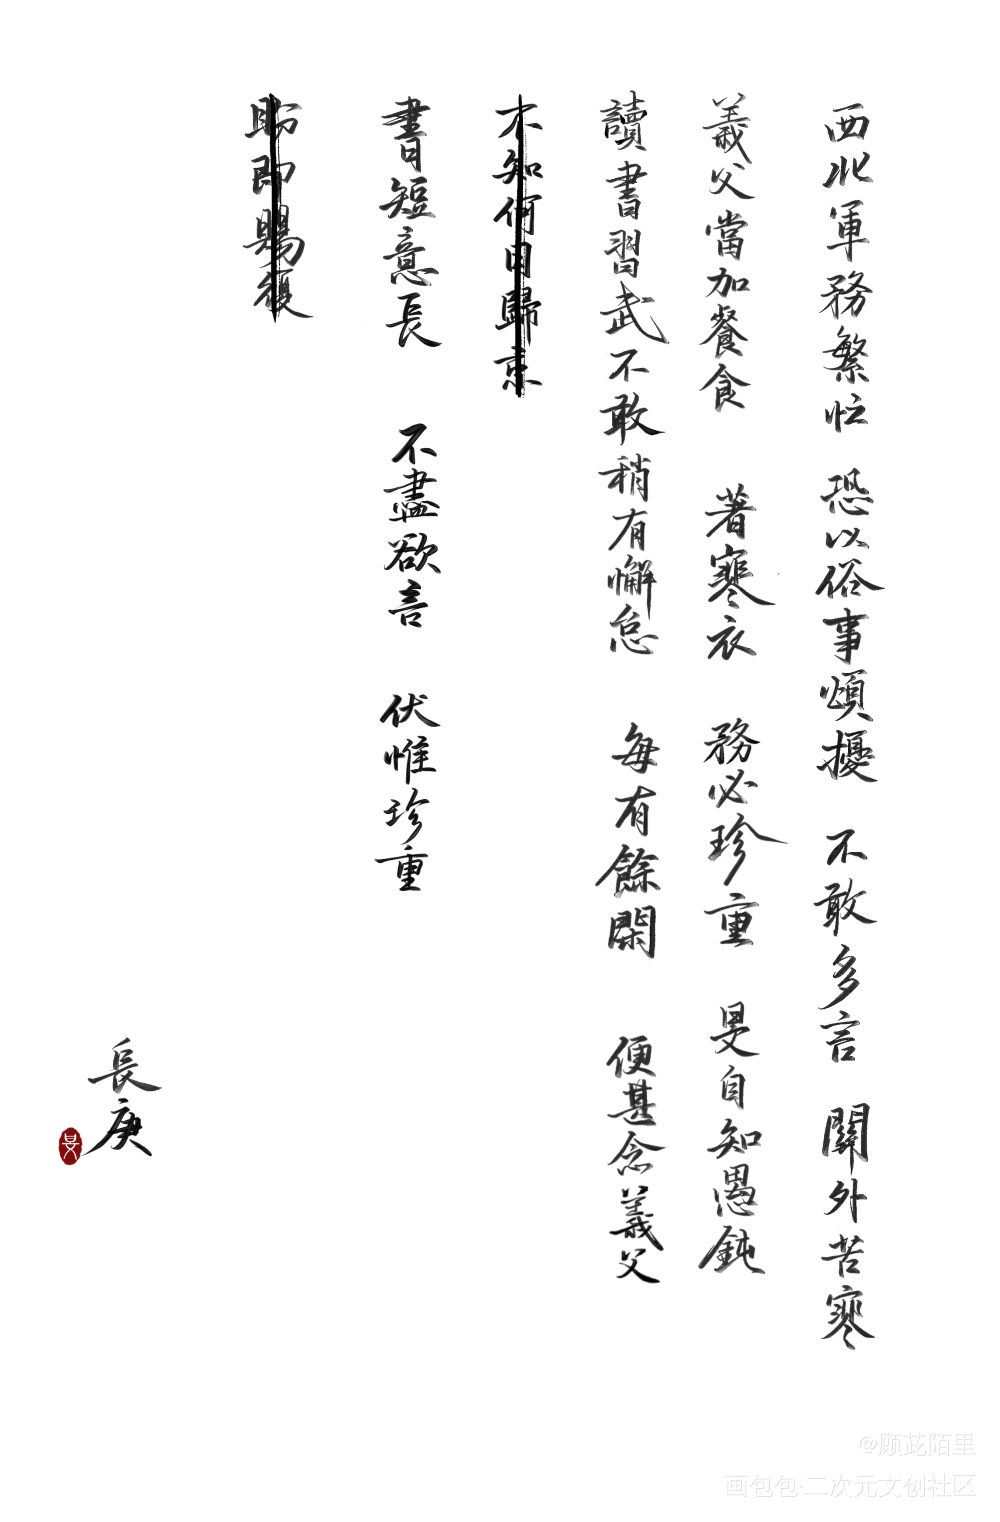 西北軍務繁忙 恐以俗事煩擾 不敢多言 關外苦寒
義父當加餐食 著寒衣 務必珍重 旻自知愚鈍
讀書習武不敢稍有懈怠 每有餘閑 便甚念義父
不知何日歸京
書短意長 不盡欲言 伏惟珍重
盼即賜復
長庚
旻
@顾茈陌里
画包包·二次元文创社区